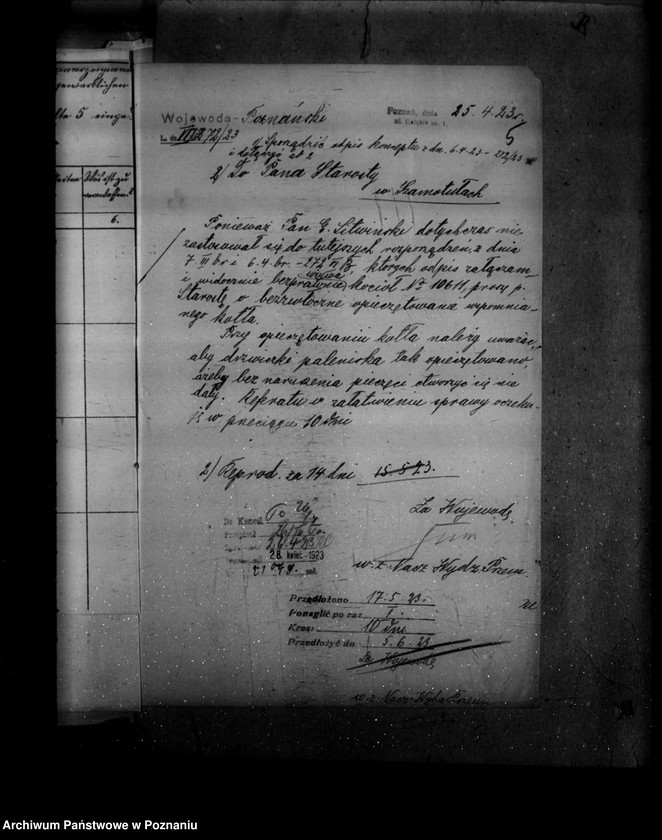 gewerblichen
6.
Wojewoda Poznański
Poznań, dnia 25.4.23r.
L. dz. 272/23
1/ Sporządzić odpis konceptu z dn. 6.4.23 – 272/23
i dołączyć ad 2
5
2/ Do Pana Starosty
w Szamotułach
Ponieważ Pan E. Litwiński dotychczas nie
zastosował się do tutejszych rozporządzeń z dnia
7 III br i 6.4. br. – 272, których odpis załączam
i widocznie bezprawnie używa kocioł No 10611, proszę p.
Starostę o bezzwłoczne opieczętowanie wspomnia-
nego kotła.
Przy opieczętowaniu kotła należy uważać,
aby drzwiczki paleniska tak opieczętowano,
ażeby bez naruszenia pieczęci otworzyć się nie
dały. Raportu o załatwieniu sprawy oczeku-
ję w przeciągu 10 dni
2/ Reprod. za 14 dni 15.5.23.
Za Wojewodę
w. z. Nacz Wydz Przem.
Do Kancel.
28. kwiet. 1923
Przedłożono 17.5.23.
Ponaglić po raz I.
Kres: 10 dni
Przedłożyć dn. 5.6.23
Za Wojewodę
w. z. Nacz Wydz Przem
Archiwum Państwowe w Poznaniu